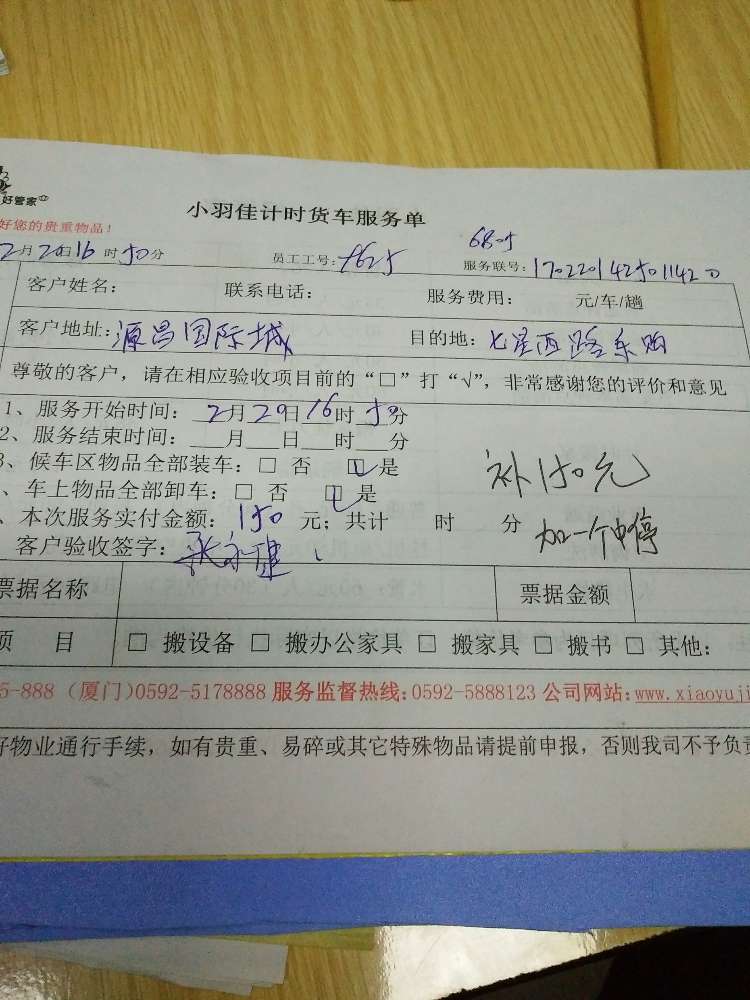 好管家
小羽佳计时货车服务单
好您的贵重物品！
6805
2月20日16时50分 员工工号：8625 服务联号：1702201425011420
客户姓名： 联系电话： 服务费用： 元/车/趟
客户地址：源昌国际城 目的地：七星西路乐购
尊敬的客户，请在相应验收项目前的“□”打“√”，非常感谢您的评价和意见
1、服务开始时间：2月20日16时50分
2、服务结束时间：___月___日___时___分
3、候车区物品全部装车：□ 否 ☑ 是
、车上物品全部卸车：□ 否 ☑ 是
补150元
、本次服务实付金额：150 元；共计 时 分
加一个中停
客户验收签字：张永建
票据名称 票据金额
项 目 □ 搬设备 □ 搬办公家具 □ 搬家具 □ 搬书 □ 其他：
5-888（厦门）0592-5178888 服务监督热线：0592-5888123 公司网站：www.xiaoyuji
好物业通行手续，如有贵重、易碎或其它特殊物品请提前申报，否则我司不予负责